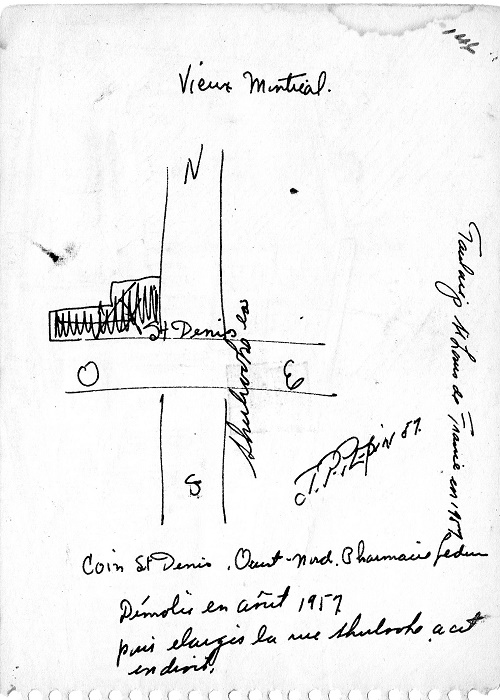 144
Vieux Montréal.
N
St Denis
O
E
S
Sherbrooke
St Louis de France en 1957
J.P. Pépin 57.
Coin St Denis, Ouest-Nord. Pharmacie
Démolie en août 1957
puis elargis la rue Sherbrooke a cet
endroit.